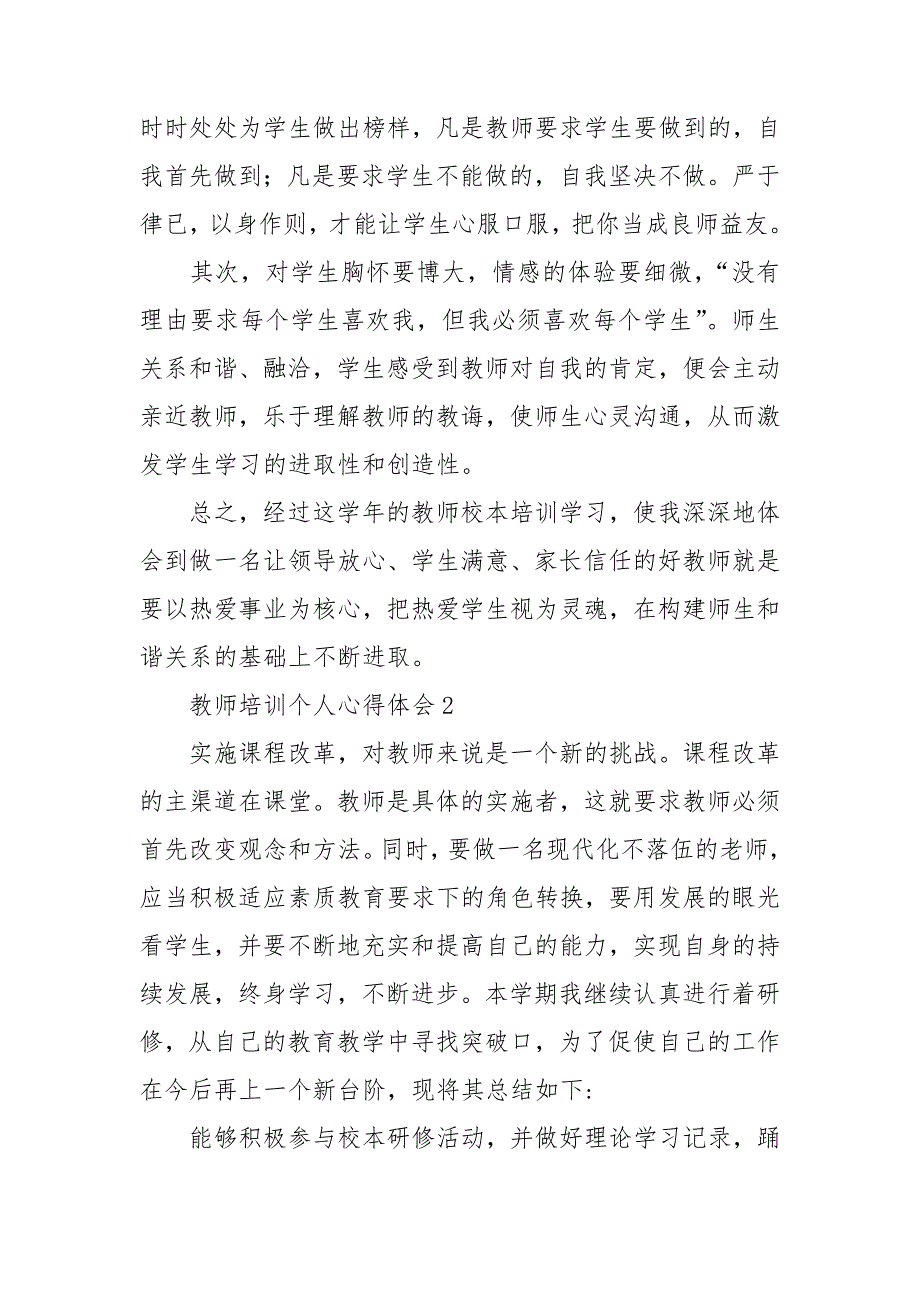 时时处处为学生做出榜样，凡是教师要求学生要做到的，自
我首先做到；凡是要求学生不能做的，自我坚决不做。严于
律已，以身作则，才能让学生心服口服，把你当成良师益友。
其次，对学生胸怀要博大，情感的体验要细微，“没有
理由要求每个学生喜欢我，但我必须喜欢每个学生”。师生
关系和谐、融洽，学生感受到教师对自我的肯定，便会主动
亲近教师，乐于理解教师的教诲，使师生心灵沟通，从而激
发学生学习的进取性和创造性。
总之，经过这学年的教师校本培训学习，使我深深地体
会到做一名让领导放心、学生满意、家长信任的好教师就是
要以热爱事业为核心，把热爱学生视为灵魂，在构建师生和
谐关系的基础上不断进取。
教师培训个人心得体会2
实施课程改革，对教师来说是一个新的挑战。课程改革
的主渠道在课堂。教师是具体的实施者，这就要求教师必须
首先改变观念和方法。同时，要做一名现代化不落伍的老师，
应当积极适应素质教育要求下的角色转换，要用发展的眼光
看学生，并要不断地充实和提高自己的能力，实现自身的持
续发展，终身学习，不断进步。本学期我继续认真进行着研
修，从自己的教育教学中寻找突破口，为了促使自己的工作
在今后再上一个新台阶，现将其总结如下：
能够积极参与校本研修活动，并做好理论学习记录，踊